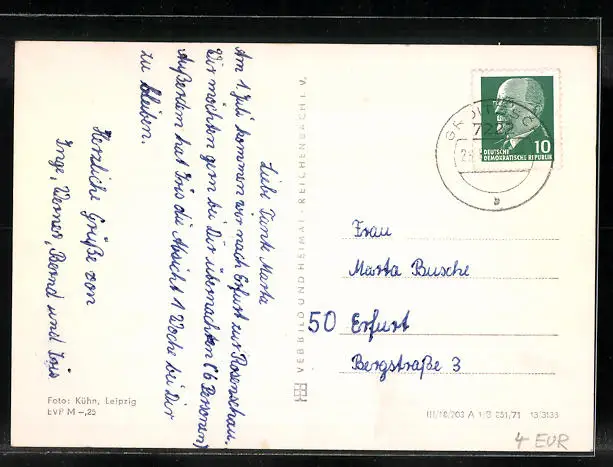 Liebe Tante Marta
Am 1. Juli kommen wir nach Erfurt zur Rosenschau.
Wir möchten gern bei Dir übernachten (6 Personen)
Außerdem hat Iris die Absicht 1 Woche bei Dir
zu bleiben.
Herzliche Grüße von
Inge, Werner, Bernd und Iris
Foto: Kühn, Leipzig
EVP M –,25
VEB BILD UND HEIMAT · REICHENBACH I. V.
GROITZSCH
7222
a
10
DEUTSCHE
DEMOKRATISCHE REPUBLIK
Frau
Marta Busche
50 Erfurt
Bergstraße 3
III/18/203 A 1/B 651/71 13/3133
4 EUR